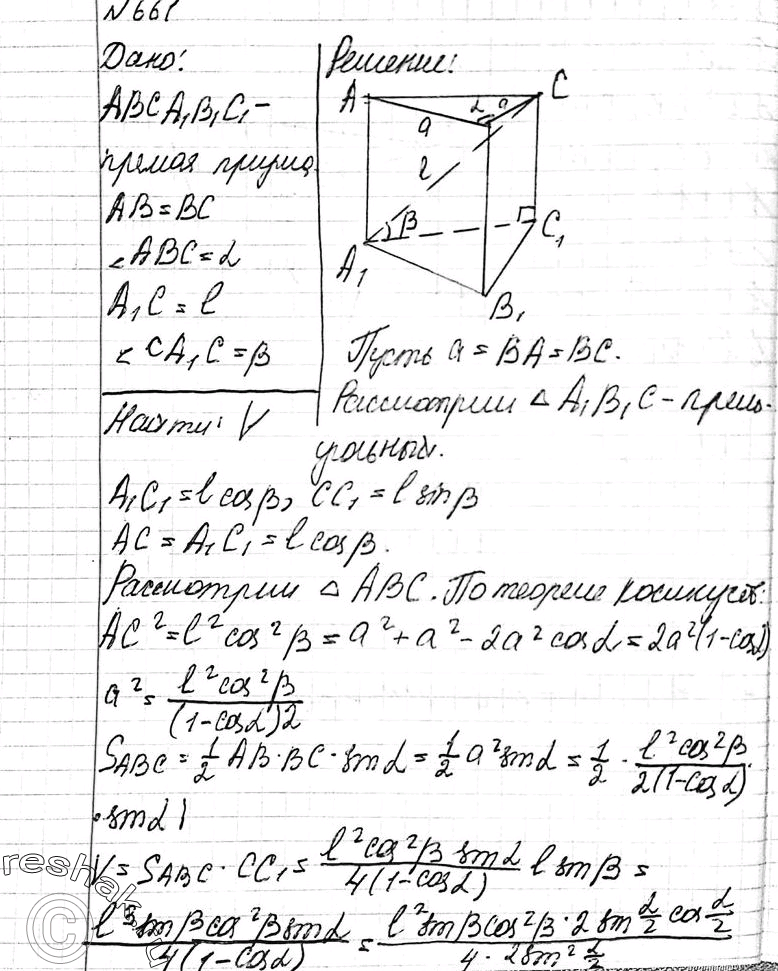 N661
Дано:
ABCA₁B₁C₁-
прямая призма
AB=BC
∠ABC=α
A₁C=l
∠CA₁C=β
Найти: V
Решение:
A
C
α
a
a
l
β
A₁
C₁
B₁
Пусть a=BA=BC.
Рассмотрим △A₁B₁C-прямо-
угольный.
A₁C₁=l cosβ, CC₁=l sinβ
AC=A₁C₁=l cosβ.
Рассмотрим △ABC. По теореме косинусов:
AC²=l²cos²β=a²+a²-2a²cosα=2a²(1-cosα)
a²=l²cos²β/(1-cosα)2
S_ABC=1/2 AB·BC·sinα=1/2 a²sinα=1/2·l²cos²β/2(1-cosα)·
·sinα
V=S_ABC·CC₁=l²cos²β sinα/4(1-cosα) l sinβ=
l³sinβcos²βsinα/4(1-cosα)=l²sinβcos²β·2sin α/2 cos α/2/4·2sin² α/2
reshak
©